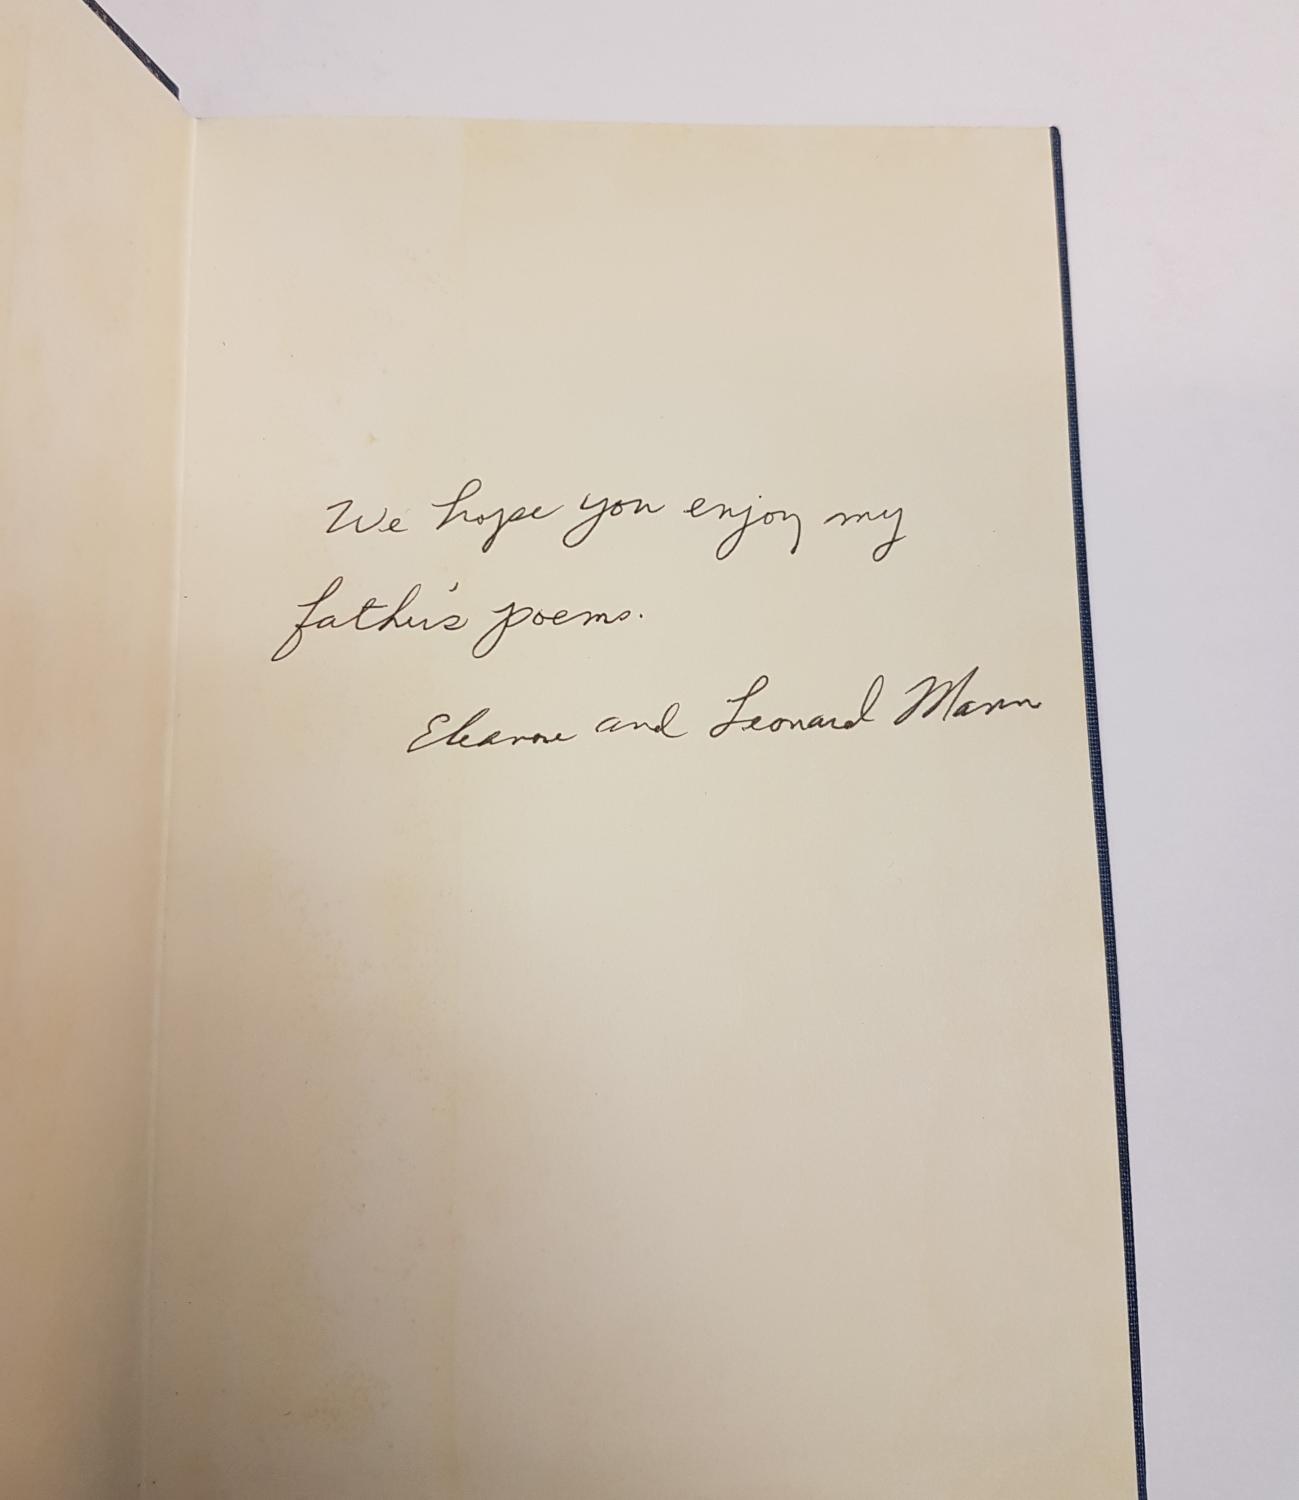 We hope you enjoy my
father's poems.
Eleanore and Leonard Mann